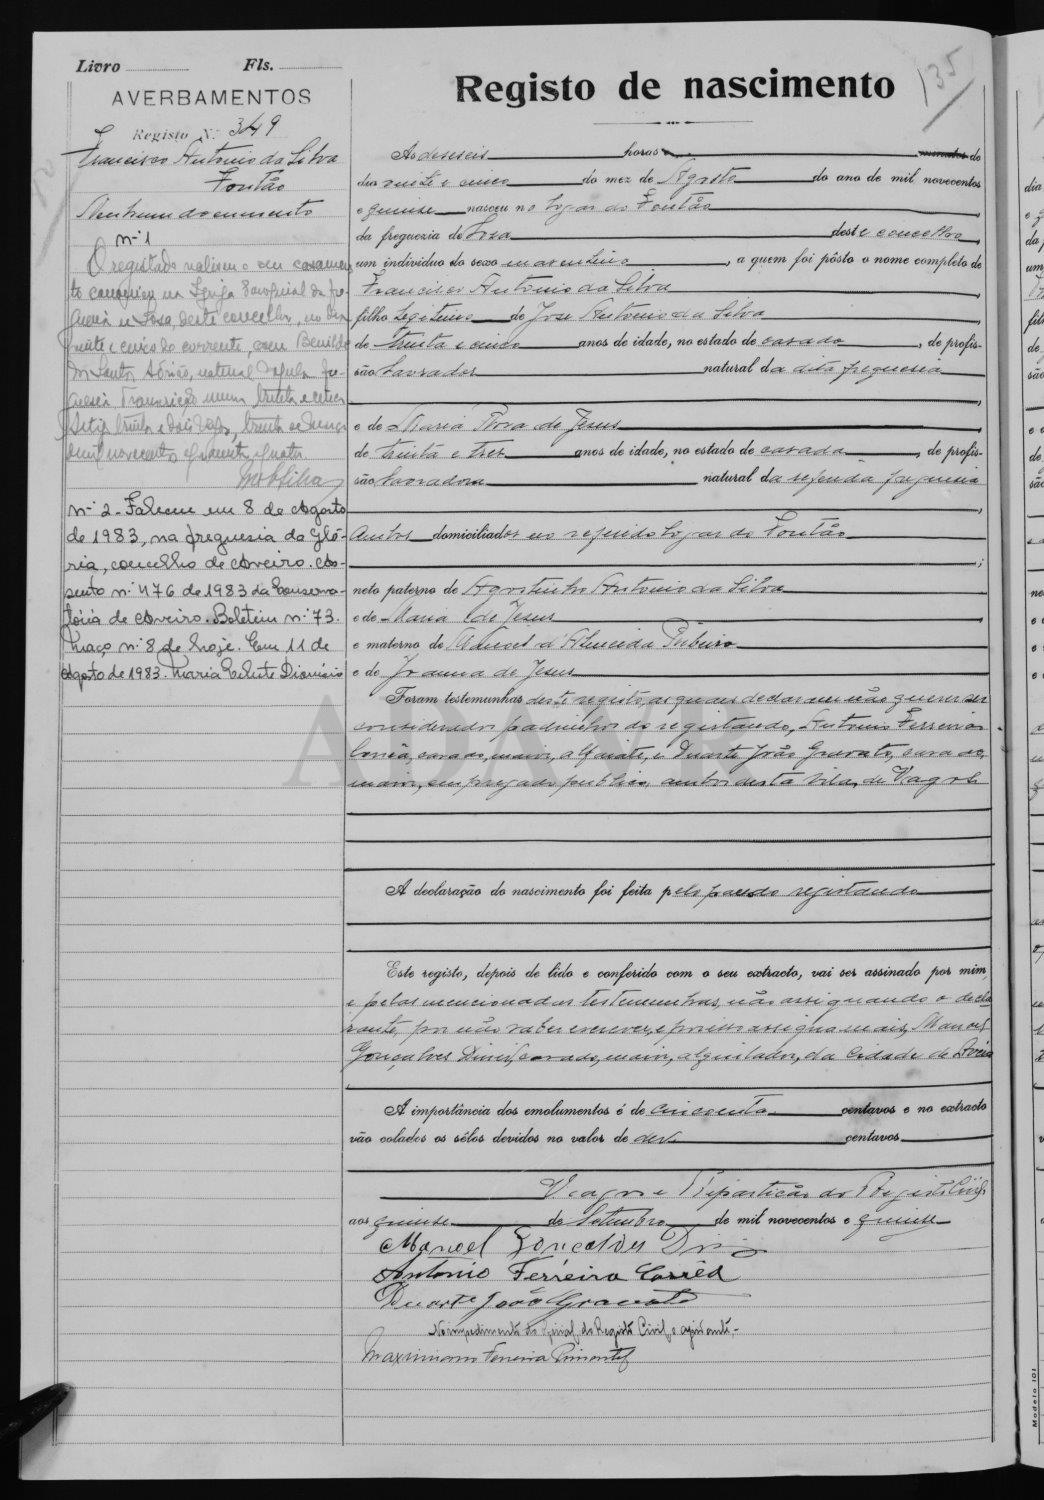 Livro Fls.
AVERBAMENTOS
Registo N.º 349
Francisco Antonio da Silva
Fontão
Nenhum documento
nº 1
O registado realisou o seu casamen-
to canonico na Igreja Paroquial da fre-
guesia de Sosa, deste concelho, no dia
vinte e cinco do corrente, com Benilde
dos Santos, natural daquela fre-
guesia. Transcrição numa trinta e
trinta e dois Vagos, trinta de
mil novecentos quarenta
nº 2 - Faleceu em 8 de Agosto
de 1983, na freguesia da Gló-
ria, concelho de Aveiro. As-
sento nº 476 de 1983 da Conserva-
tória de Aveiro. Boletim nº 73.
Maço nº 8 de hoje. Em 11 de
Agosto de 1983. Maria Celeste Dionísio
135
Registo de nascimento
As deseseis horas minutos do
dia vinte e cinco do mez de Agosto do ano de mil novecentos
e quinse nasceu no logar do Fontão,
da freguezia de Sosa deste concelho,
um individuo do sexo masculino, a quem foi pôsto o nome completo de
Francisco Antonio da Silva,
filho legitimo de José Antonio da Silva,
de trinta e cinco anos de idade, no estado de casado, de profis-
são lavrador natural da dita freguesia,
e de Maria Rosa de Jesus,
de trinta e tres anos de idade, no estado de casada, de profis-
são lavradora natural da referida freguesia,
Ambos domiciliados no referido logar do Fontão;
neto paterno de Agostinho Antonio da Silva
e de Maria de Jesus,
e materno de Manuel d'Almeida Ribeiro
e de Joanna de Jesus
Foram testemunhas deste registo, as quais declararam não querer ser
considerados padrinhos do registando, Antonio Ferreira
Corrêa, casado, maior, alfaiate, e Duarte João Gravato, casado,
maior, empregado publico, ambos desta vila de Vagos
A declaração do nascimento foi feita pelo pae do registando
Este registo, depois de lido e conferido com o seu extracto, vai ser assinado por mim,
e pelas mencionadas testemunhas, não assignando o decla-
rante, por não saber escrever, e por isso assigna mais, Manoel
Gonçalves Diniz, casado, maior, alquilador, da cidade de Aveiro
A importância dos emolumentos é de cincoenta centavos e no extracto
vão colados os sêlos devidos no valor de dez centavos
Vagos e Repartição do Registo Civil
aos quinse de Setembro de mil novecentos e quinse
Manoel Gonçalves Diniz
Antonio Ferreira Corrêa
Duarte João Gravato
No impedimento do Oficial do Registo Civil, o ajudante,
Maximiano Ferreira Pimentel
Modelo 101